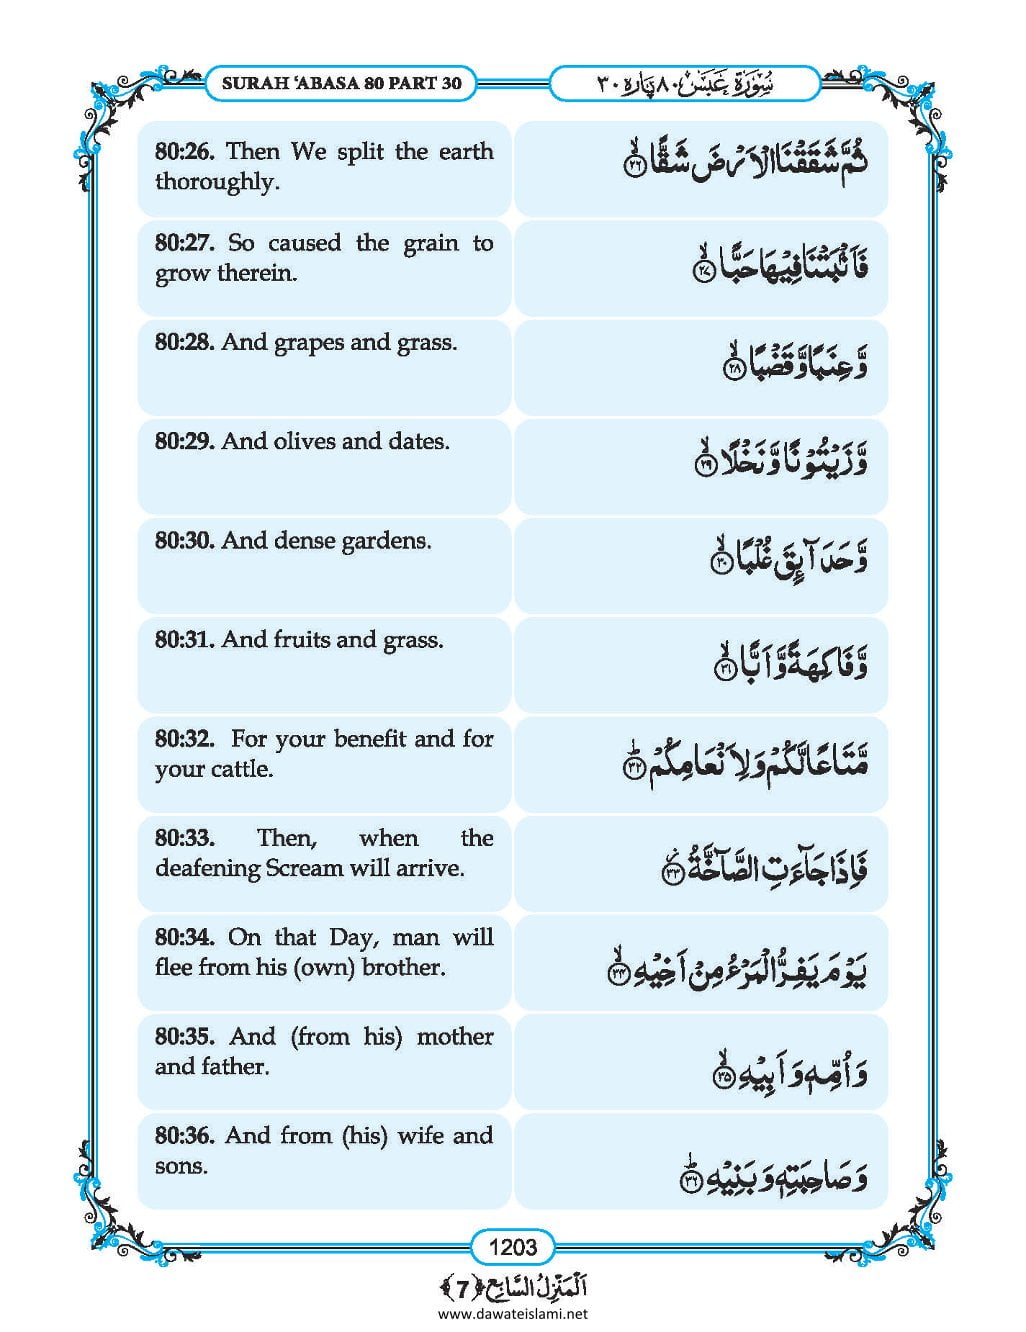 SURAH ‘ABASA 80 PART 30
سُوْرَةُ عَبَسَ ٨٠ پَارہ ٣٠
80:26. Then We split the earth
thoroughly.
ثُمَّ شَقَقْنَا الْاَرْضَ شَقًّا ۙ﴿۲۶﴾
80:27. So caused the grain to
grow therein.
فَاَنْۢبَتْنَا فِیْهَا حَبًّا ۙ﴿۲۷﴾
80:28. And grapes and grass.
وَّ عِنَبًا وَّ قَضْبًا ۙ﴿۲۸﴾
80:29. And olives and dates.
وَّ زَیْتُوْنًا وَّ نَخْلًا ۙ﴿۲۹﴾
80:30. And dense gardens.
وَّ حَدَآئِقَ غُلْبًا ۙ﴿۳۰﴾
80:31. And fruits and grass.
وَّ فَاكِهَةً وَّ اَبًّا ۙ﴿۳۱﴾
80:32. For your benefit and for
your cattle.
مَّتَاعًا لَّكُمْ وَ لِاَنْعَامِكُمْ ؕ﴿۳۲﴾
80:33. Then, when the
deafening Scream will arrive.
فَاِذَا جَآءَتِ الصَّآخَّةُ ۫﴿۳۳﴾
80:34. On that Day, man will
flee from his (own) brother.
یَوْمَ یَفِرُّ الْمَرْءُ مِنْ اَخِیْهِ ۙ﴿۳۴﴾
80:35. And (from his) mother
and father.
وَ اُمِّهٖ وَ اَبِیْهِ ۙ﴿۳۵﴾
80:36. And from (his) wife and
sons.
وَ صَاحِبَتِهٖ وَ بَنِیْهِ ؕ﴿۳۶﴾
1203
اَلْمَنْزِلُ السَّابِع ﴿7﴾
www.dawateislami.net